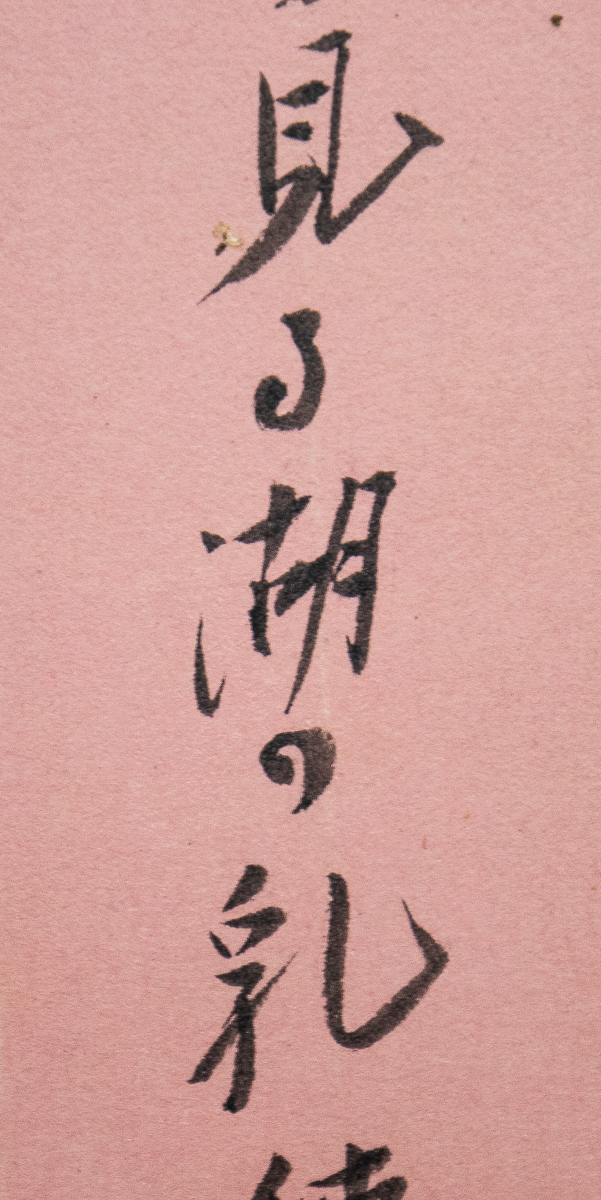 見る湖の乳